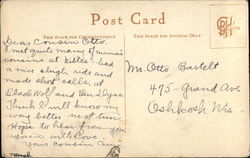 Post Card
THIS SPACE FOR CORRESPONDENCE
THIS SPACE FOR ADDRESS ONLY
Dear Cousin Otto.
I met quite many of mama's
cousins at Kittes. had
a nice sleigh ride and
made short calls, at
Black Wolf and Van Dyne
Think I will know my
way better next time
Hope to hear from you
again with Love
Your cousin
Mr. Otto Bartelt
475- Grand Ave
Oshkosh Wis